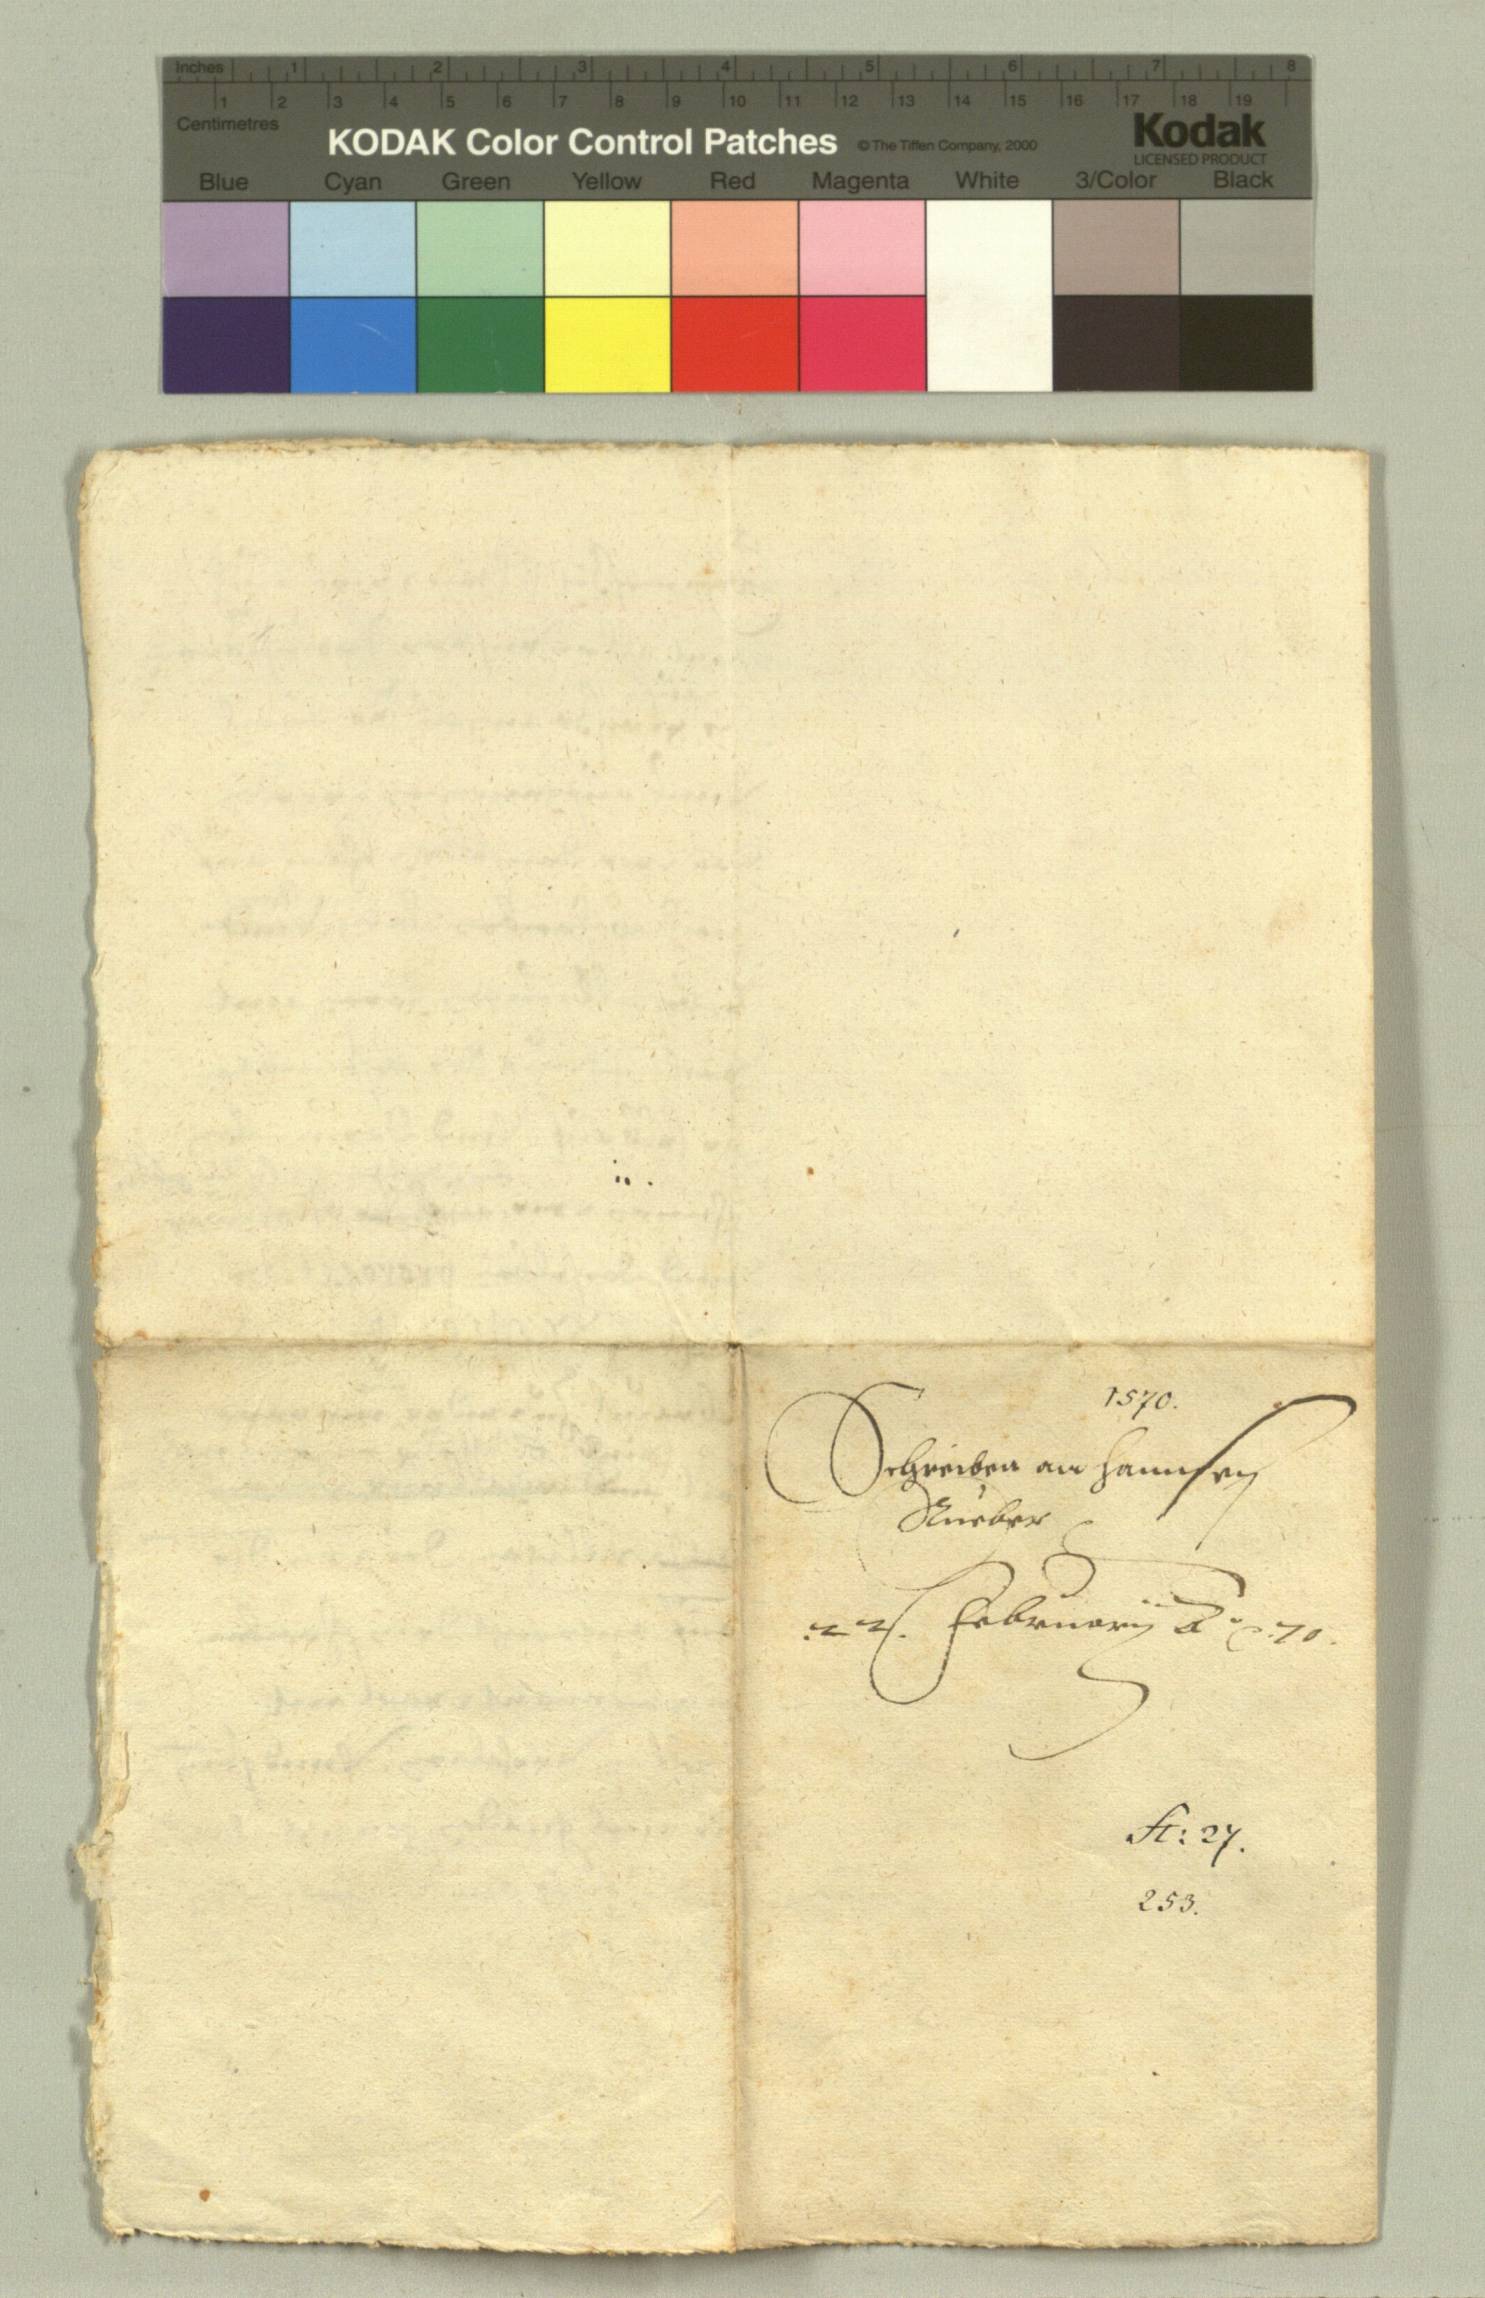 Inches 1 2 3 4 5 6 7 8
1 2 3 4 5 6 7 8 9 10 11 12 13 14 15 16 17 18 19
Centimetres
KODAK Color Control Patches © The Tiffen Company, 2000 Kodak
LICENSED PRODUCT
Blue Cyan Green Yellow Red Magenta White 3/Color Black
1570.
Schreiben an Hannsen
Rueber
22. Februarij Aº 70.
St: 27.
253.